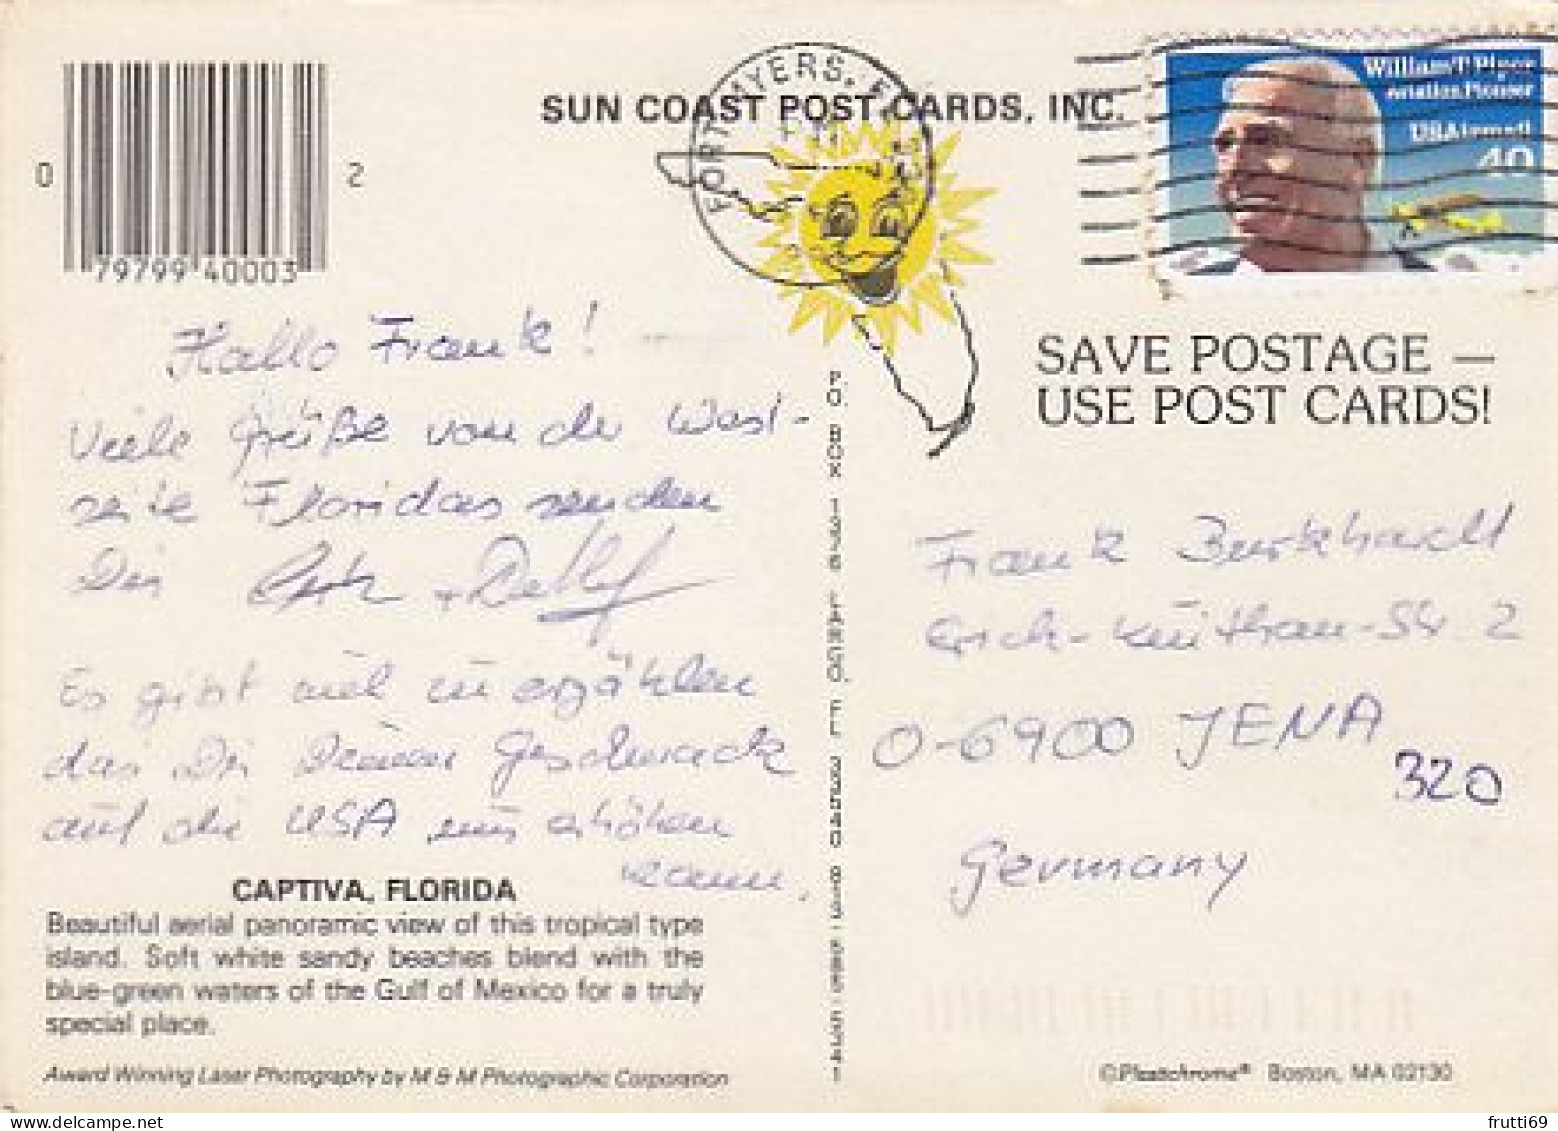 0 79799 40003 2
SUN COAST POST CARDS, INC.
FORT MYERS, FL
William T Piper
Aviation Pioneer
USAirmail
40
SAVE POSTAGE —
USE POST CARDS!
Hallo Frank!
Viele Grüße von der West-
seite Floridas senden
Dir + Detlef
Es gibt viel zu erzählen
das Dir Deinen Geschmack
auf die USA nur erhöhen
kann.
CAPTIVA, FLORIDA
Beautiful aerial panoramic view of this tropical type
island. Soft white sandy beaches blend with the
blue-green waters of the Gulf of Mexico for a truly
special place.
Award Winning Laser Photography by M & M Photographic Corporation
P.O. BOX LARGO, FL
Frank Burkhardt
Erich-Kuithan-Str 2
O-6900 JENA
320
Germany
©Plastichrome® Boston, MA 02130
frutti69